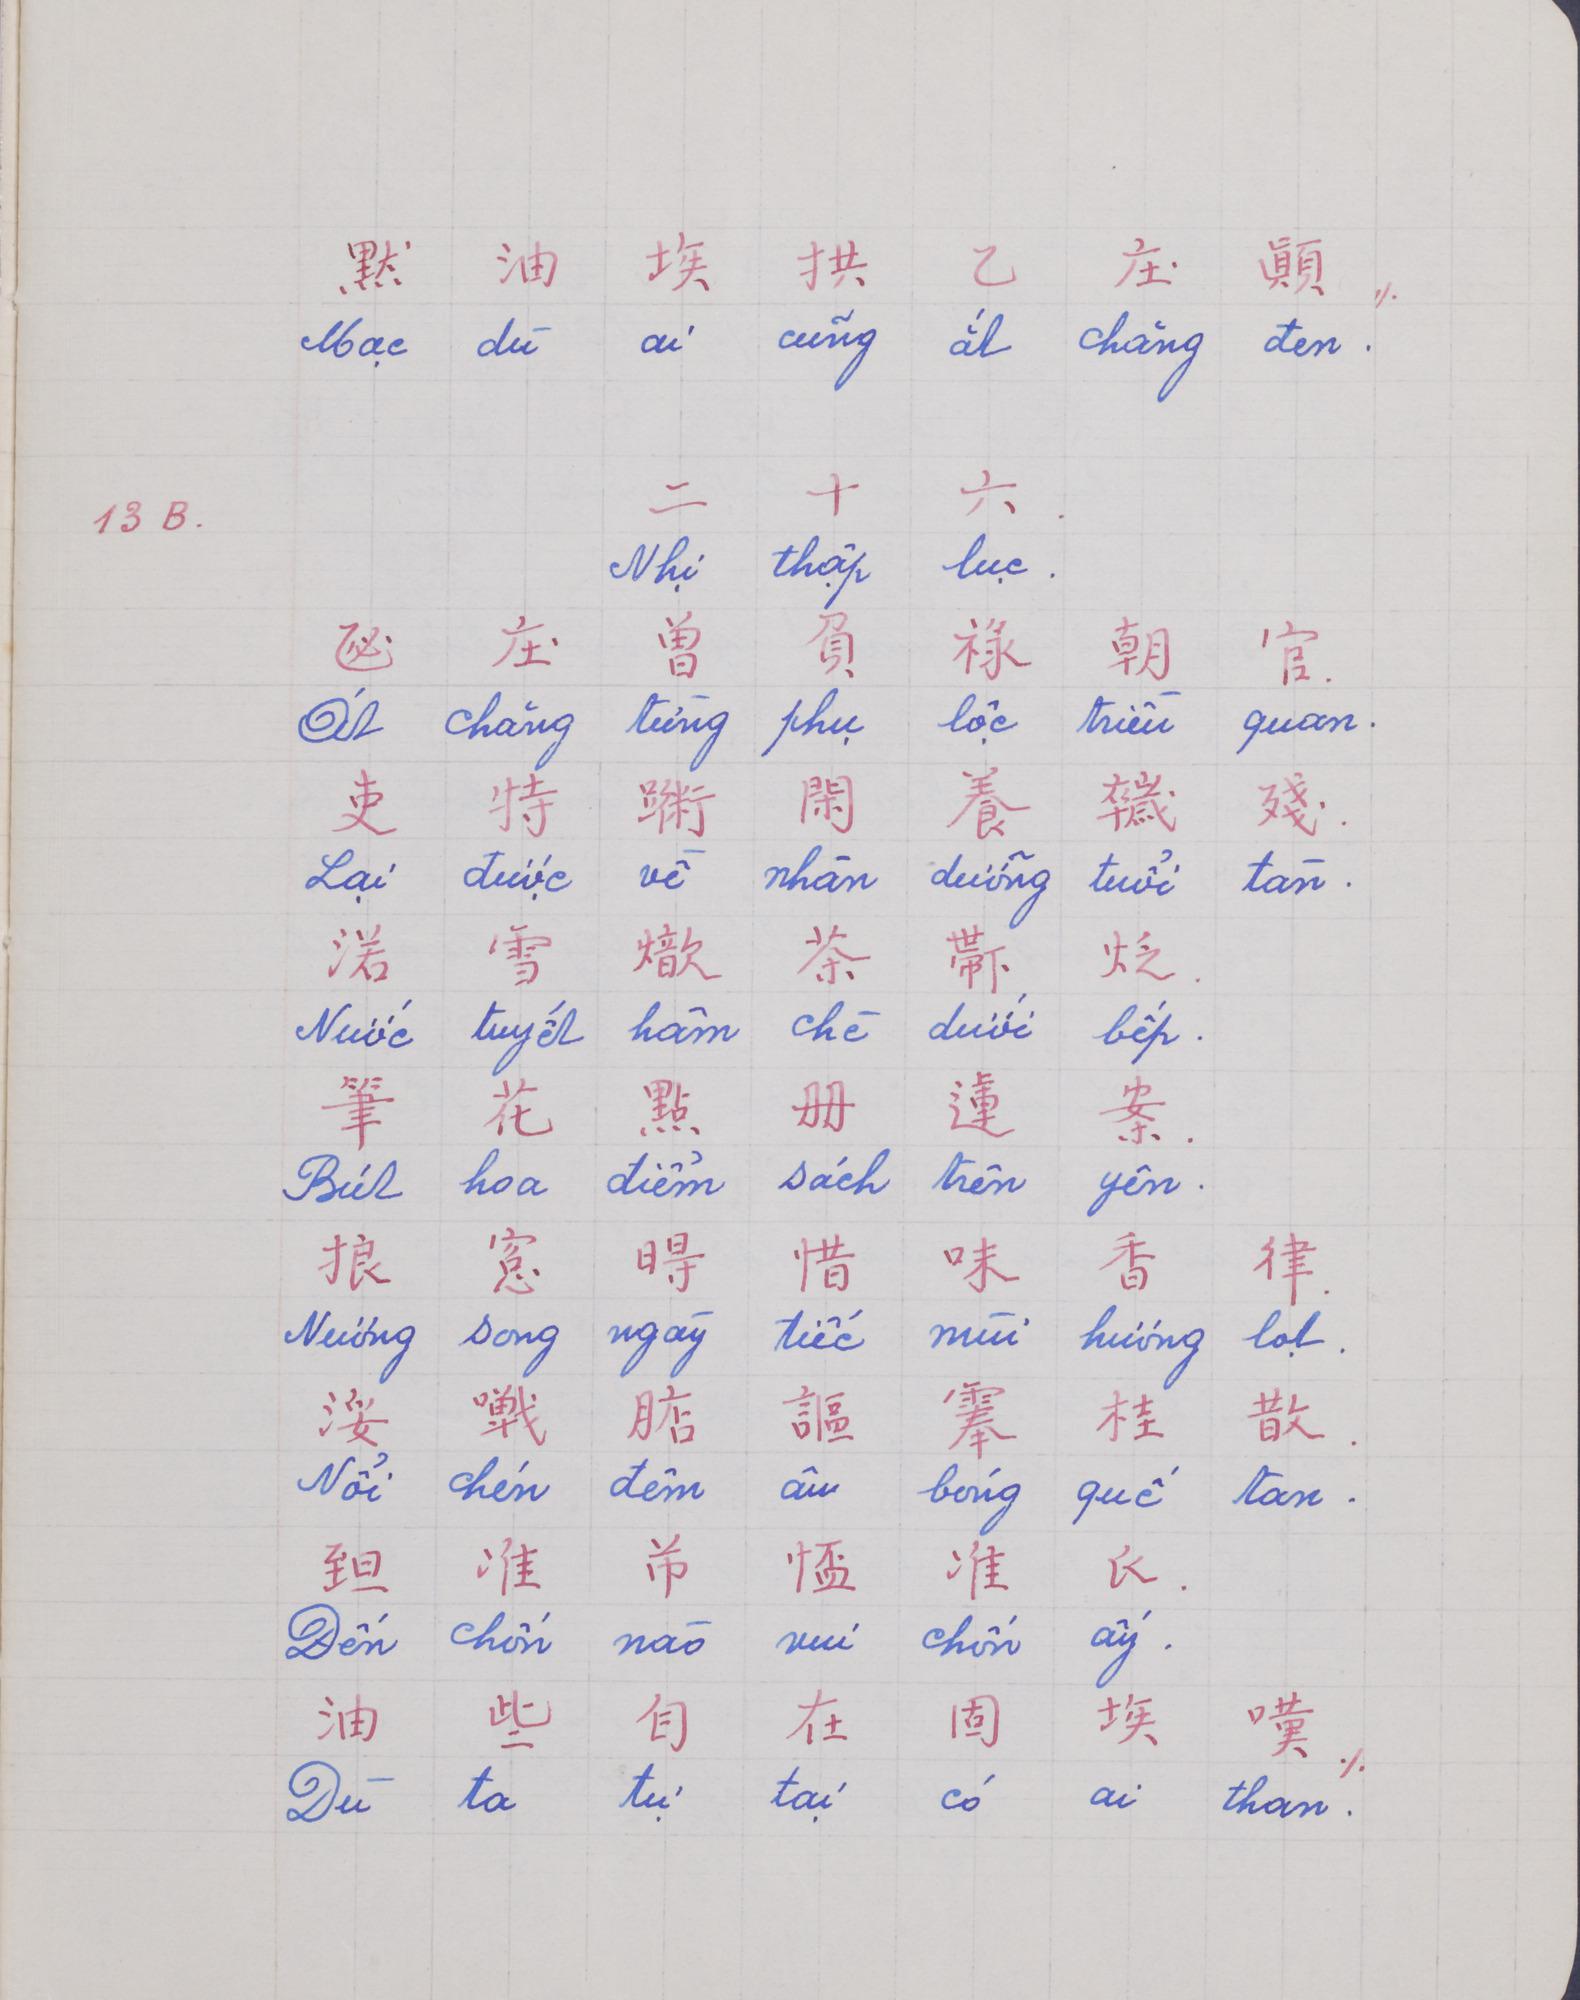 默 油 埃 拱 乙 庄 顚 ٪.
Mạc dù ai cũng ắt chăng đen .
13 B.
二 十 六 .
Nhị thập lục .
庄 曾 負 祿 朝 官 .
Ất chăng từng phụ lộc triều quan .
吏 特 閑 養 殘 .
Lại được về nhàn dưỡng tuổi tàn .
渃 雪 茶 .
Nước tuyết hâm chè dưới bếp .
筆 花 點 册 蓮 案 .
Bút hoa điểm sách trên yên .
挸 窻 㝵 惜 味 香 律 .
Nương song ngày tiếc mùi hương lọt .
浽 店 謳 桂 散 .
Nổi chén đêm âu bóng quế tan .
准 准 氏 .
Đến chốn nào vui chốn ấy .
油 些 自 在 固 埃 嘆 ٪.
Dù ta tự tại có ai than .